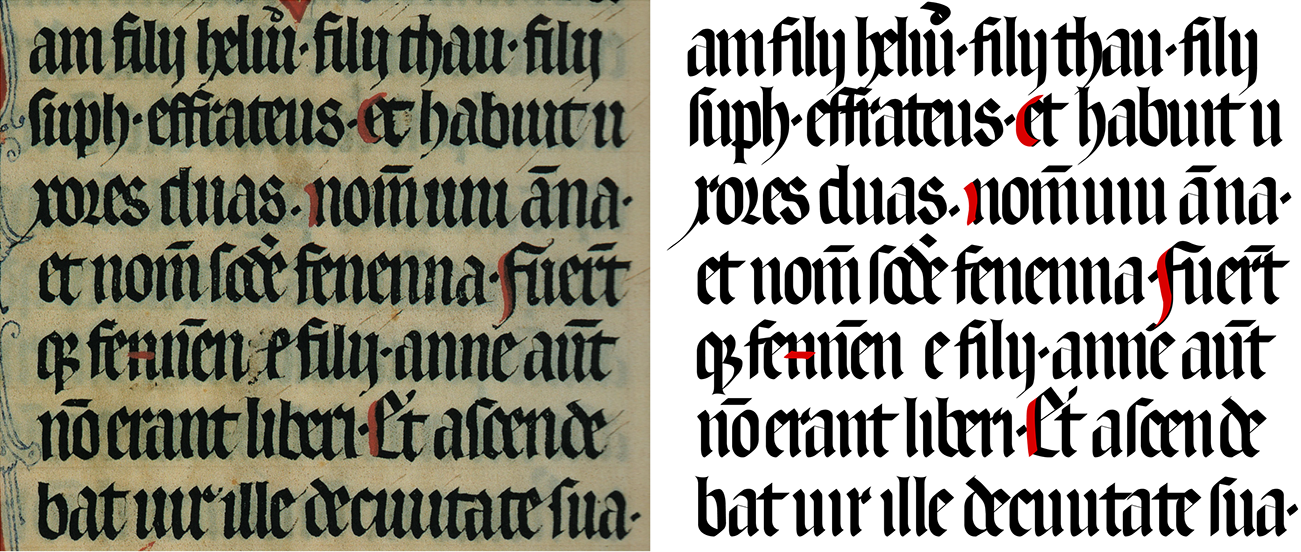 am filij heliu̾· filij thau· filij
ſuph· effrateus· et habuit u
xores duas. nom̄ uni āna·
et nom̄ ſcd̾e fenenna· fuer̄t
qꝫ fennēn e filij· anne aūt
nō erant liberi· Et aſcende
bat uir ille de ciuitate ſua·
am filij heliu̾· filij thau· filij
ſuph· effrateus· et habuit u
xores duas. nom̄ uni āna·
et nom̄ ſcd̾e fenenna· fuer̄t
qꝫ fennēn e filij· anne aūt
nō erant liberi· Et aſcende
bat uir ille de ciuitate ſua·